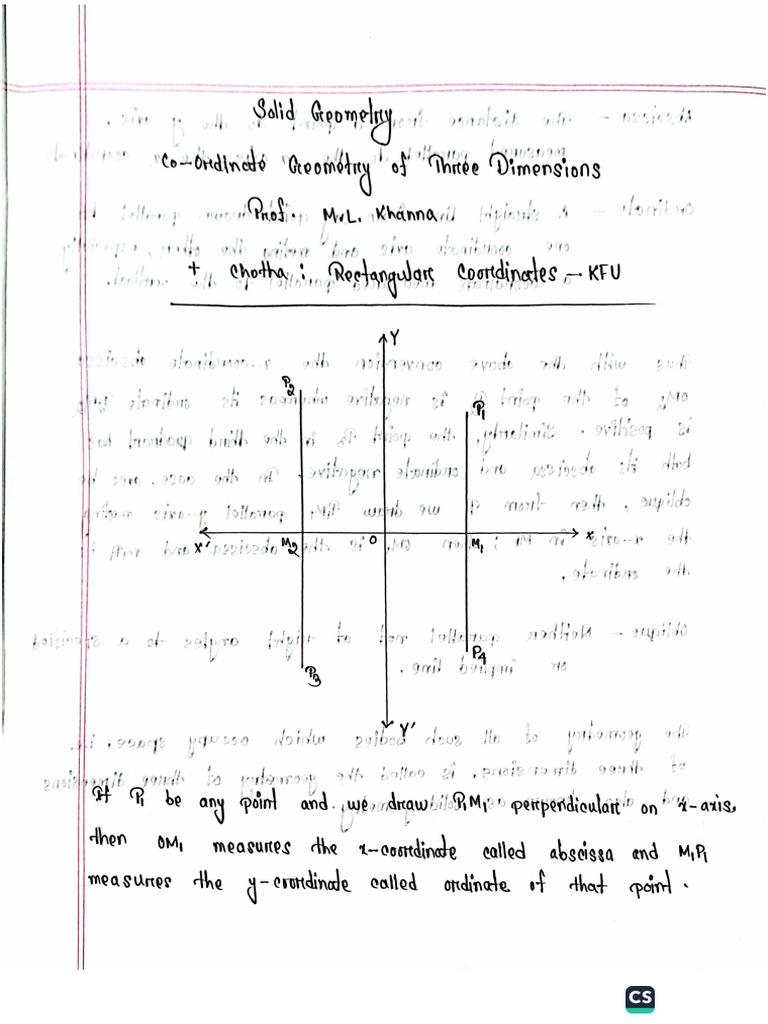 Solid Geometry
Co-Ordinate Geometry of Three Dimensions
Prof. M.L. Khanna
+ Chotha : Rectangular Coordinates - KFU
Y
P2
P1
X' M2 O M1 X
P3
P4
Y'
If P1 be any point and we draw P1M1 perpendicular on x-axis,
then OM1 measures the x-coordinate called abscissa and M1P1
measures the y-coordinate called ordinate of that point.
CS